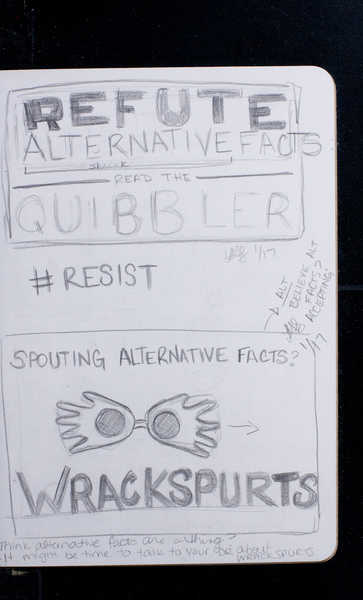 REFUTE
ALTERNATIVE FACTS
shrink
READ THE
QUIBBLER
1/17
# RESIST
ALT
BELIEVE ALT
FACTS?
ACCEPTING?
1/17
SPOUTING ALTERNATIVE FACTS?
WRACKSPURTS
Think alternative facts are a thing?
It might be time to talk to your about
WRACKSPURTS